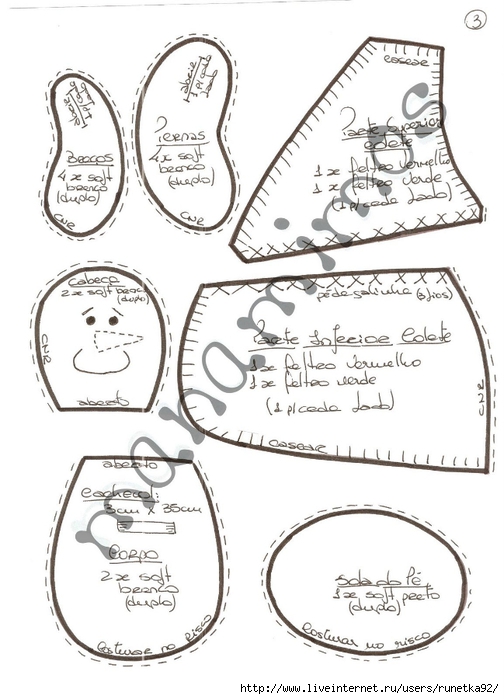 3
abrir
1 p/ cada
lado
Braços
4 x soft
branco
(duplo)
CNR
abrir
1 p/ cada
lado
Pernas
4 x soft
branco
(duplo)
CNR
casear
Parte Superior
colete
1 x feltro vermelho
1 x feltro verde
(1 p/ cada lado)
Cabeça
2 x soft branco
(duplo)
CNR
aberto
pé de galinha (3 fios)
Parte Inferior Colete
1 x feltro vermelho
1 x feltro verde
(1 p/ cada lado)
CNR
casear
aberto
Cachecol:
3cm x 35cm
Corpo
2 x soft
branco
(duplo)
Costurar no risco
Sola do Pé
1 x soft preto
(duplo)
Costurar no risco
manamimos
http://www.liveinternet.ru/users/runetka92/